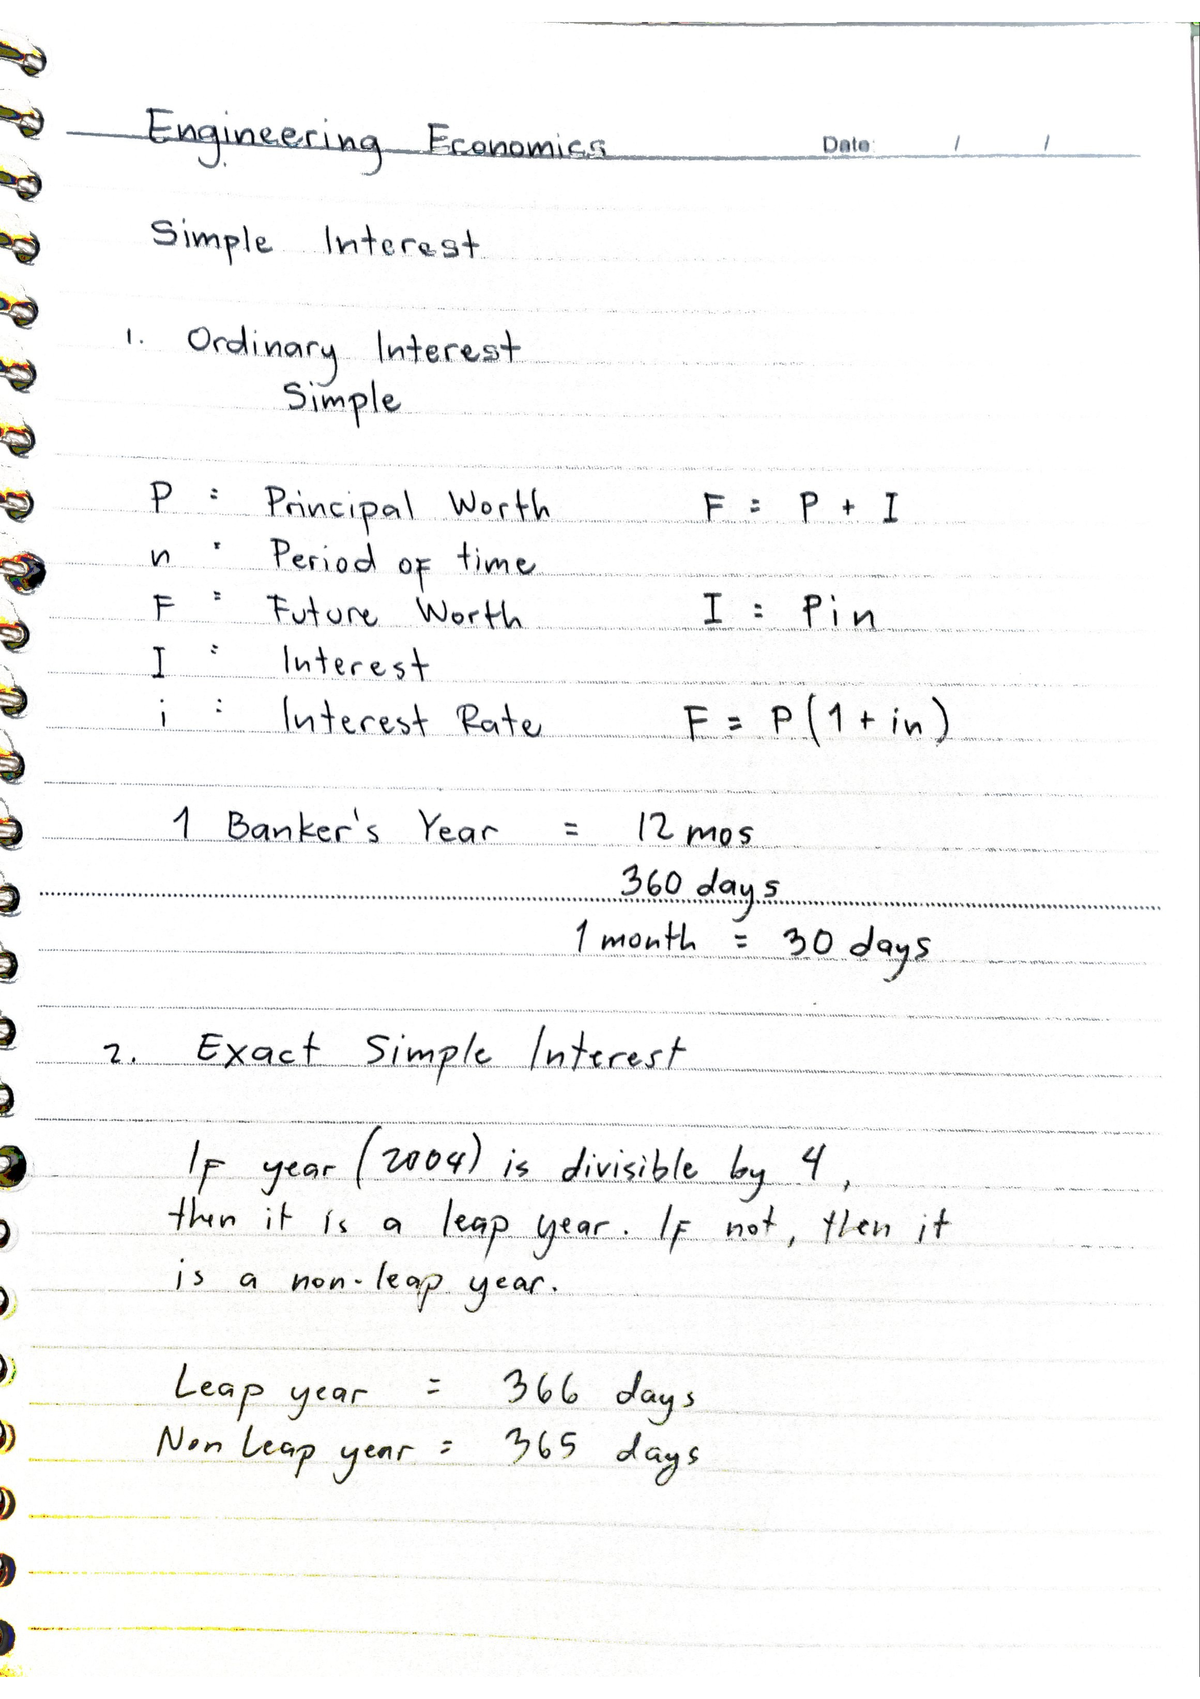 Engineering Economics
Date: / /
Simple Interest
1. Ordinary Interest
Simple
P : Principal Worth F = P + I
n : Period of time
F : Future Worth I = Pin
I : Interest
i : Interest Rate F = P(1 + in)
1 Banker's Year = 12 mos
360 days
1 month = 30 days
2. Exact Simple Interest
If year (2004) is divisible by 4,
then it is a leap year. If not, then it
is a non-leap year.
Leap year = 366 days
Non Leap year = 365 days